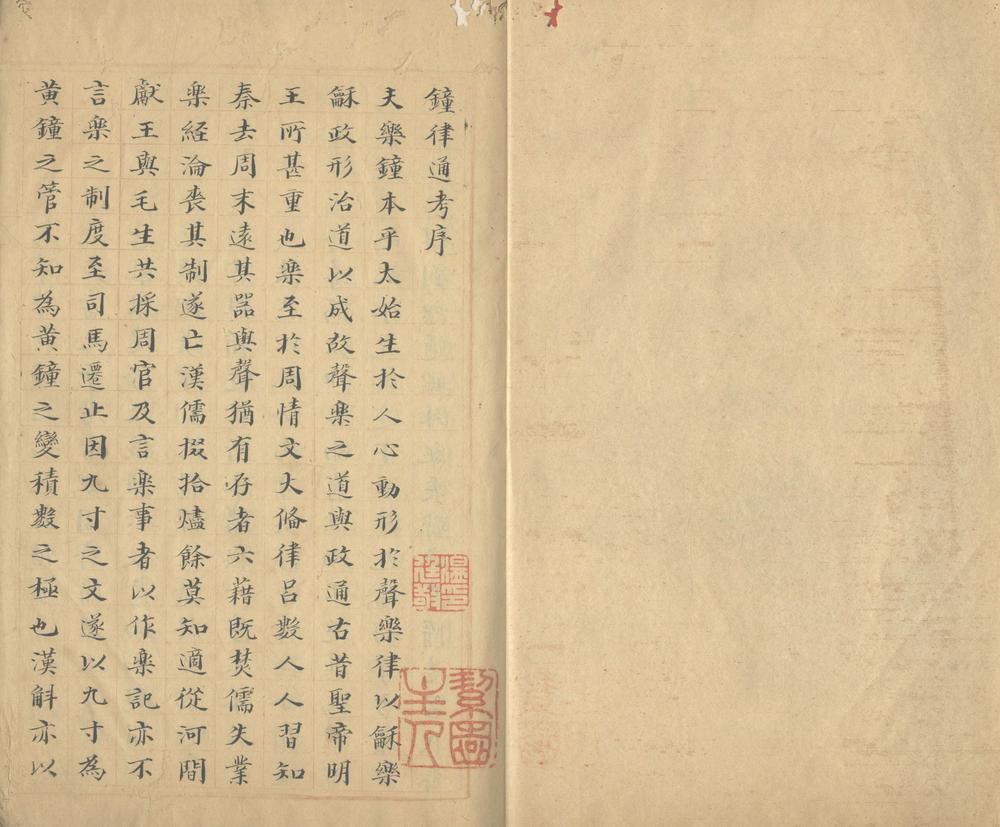 鐘律通考序
夫樂鐘本乎太始生於人心動形於聲樂律以龢樂
龢政形治道以成故聲樂之道與政通右昔聖帝明
王所甚重也樂至於周情文大俻律吕數人人習知
秦去周末遠其噐與聲猶有存者六藉既焚儒失業
樂経淪喪其制遂亡漢儒掇拾燼餘莫知適從河間
獻王與毛生共採周官及言樂事者以作樂記亦不
言樂之制度至司馬遷止因九寸之文遂以九寸為
黄鐘之管不知為黄鐘之變積數之極也漢斛亦以